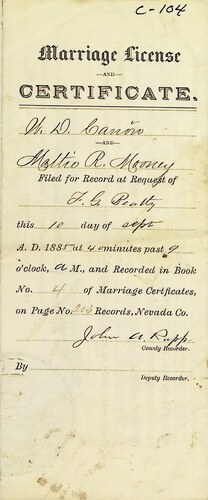 C-104
Marriage License
—AND—
CERTIFICATE.
W. D. Canon
—AND—
Mattie R. Mooney
Filed for Record at Request of
F. G. Beatty
this 10 day of Sept
A. D. 1885 at 40 minutes past 9
o'clock, A M., and Recorded in Book
No. 4 of Marriage Certficates,
on Page No. Records, Nevada Co.
John A. Rapp
County Recorder.
By
Deputy Recorder.